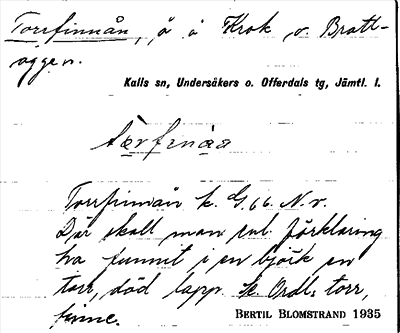 Torrfinnån, å å Krok o. Bratt-
åggen.
Kalls sn, Undersåkers o. Offerdals tg, Jämtl. l.
tàrfìnåa
Torrfinnån k. G.66. N.v.
Där skall man enl. förklaring
ha funnit i en björk en
torr, död lapp. k. Ordl. torr,
finne.
BERTIL BLOMSTRAND 1935